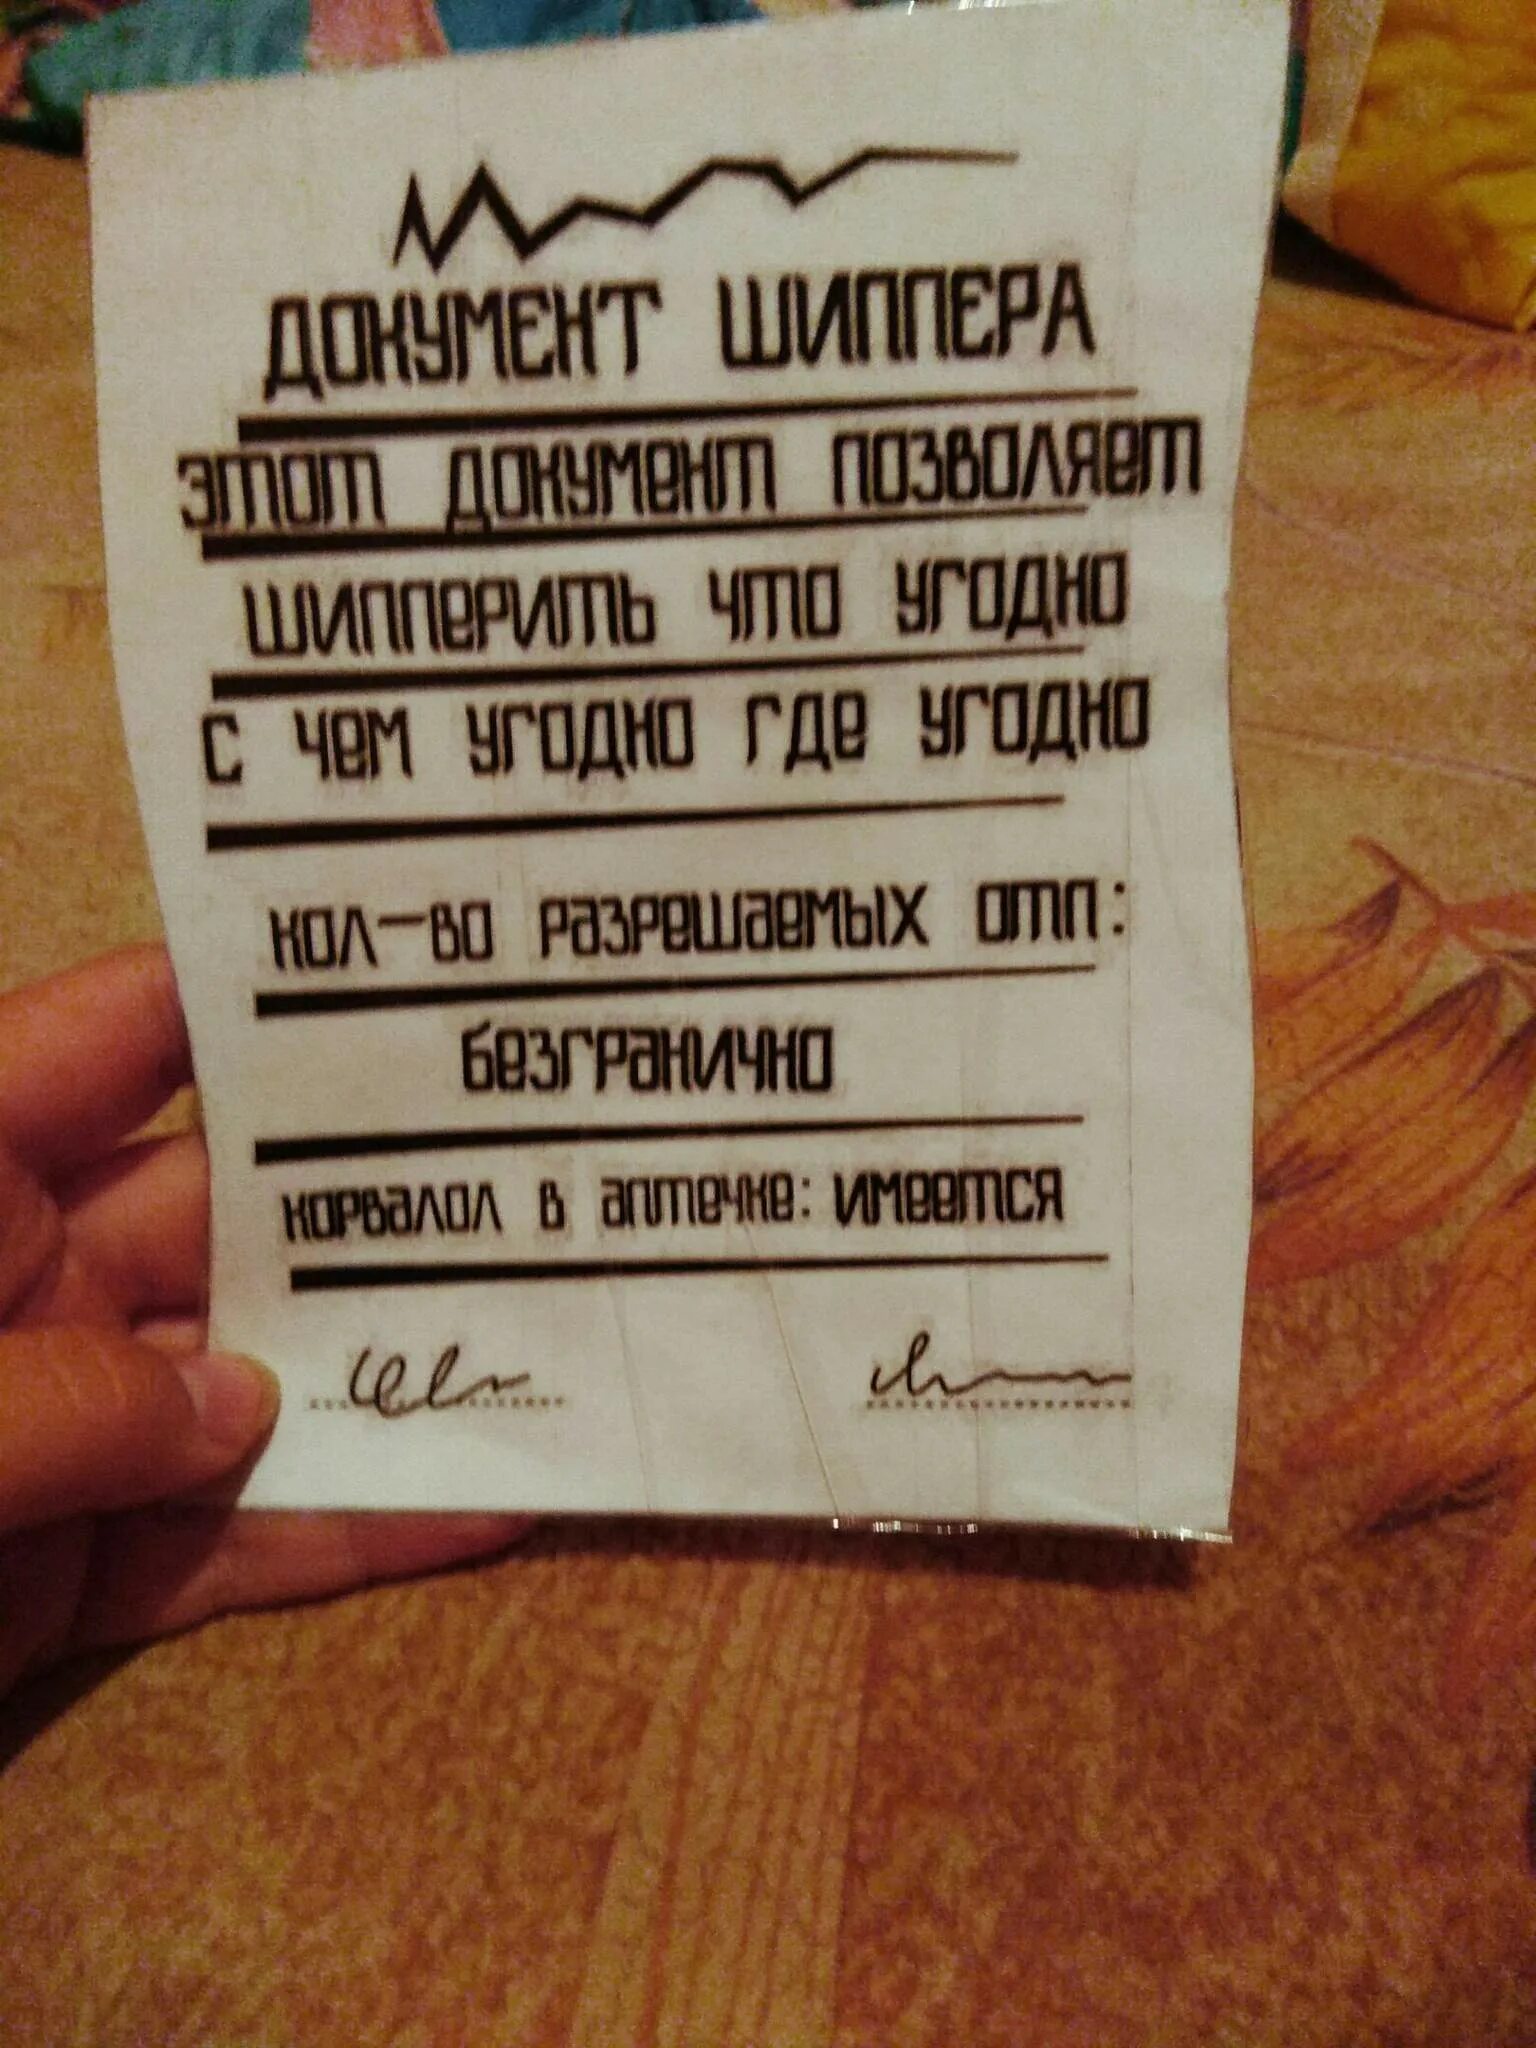 ДОКУМЕНТ ШИППЕРА
этот документ позволяет
шипперить что угодно
с чем угодно где угодно
кол-во разрешаемых отп:
безгранично
корвалол в аптечке: имеется